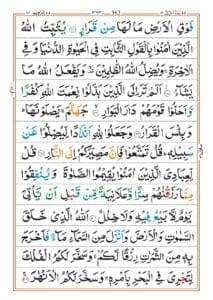 فَوْقِ الْاَرْضِ مَا لَهَا مِنْ قَرَارٍ ۝ يُثَبِّتُ اللّٰهُ
الَّذِيْنَ اٰمَنُوْا بِالْقَوْلِ الثَّابِتِ فِي الْحَيٰوةِ الدُّنْيَا وَفِي
الْاٰخِرَةِ ۚ وَيُضِلُّ اللّٰهُ الظّٰلِمِيْنَ ۙ وَيَفْعَلُ اللّٰهُ مَا
يَشَآءُ ۝ اَلَمْ تَرَ اِلَى الَّذِيْنَ بَدَّلُوْا نِعْمَتَ اللّٰهِ كُفْرًا
وَّاَحَلُّوْا قَوْمَهُمْ دَارَ الْبَوَارِ ۝ جَهَنَّمَ ۚ يَصْلَوْنَهَا ؕ
وَبِئْسَ الْقَرَارُ ۝ وَجَعَلُوْا لِلّٰهِ اَنْدَادًا لِّيُضِلُّوْا عَنْ
سَبِيْلِهٖ ؕ قُلْ تَمَتَّعُوْا فَاِنَّ مَصِيْرَكُمْ اِلَى النَّارِ ۝ قُلْ
لِّعِبَادِيَ الَّذِيْنَ اٰمَنُوْا يُقِيْمُوا الصَّلٰوةَ وَيُنْفِقُوْا
مِمَّا رَزَقْنٰهُمْ سِرًّا وَّعَلَانِيَةً مِّنْ قَبْلِ اَنْ يَّاْتِيَ
يَوْمٌ لَّا بَيْعٌ فِيْهِ وَلَا خِلٰلٌ ۝ اَللّٰهُ الَّذِيْ خَلَقَ
السَّمٰوٰتِ وَالْاَرْضَ وَاَنْزَلَ مِنَ السَّمَآءِ مَآءً فَاَخْرَجَ
بِهٖ مِنَ الثَّمَرٰتِ رِزْقًا لَّكُمْ ۚ وَسَخَّرَ لَكُمُ الْفُلْكَ
لِتَجْرِيَ فِي الْبَحْرِ بِاَمْرِهٖ ۚ وَسَخَّرَ لَكُمُ الْاَنْهٰرَ ۝